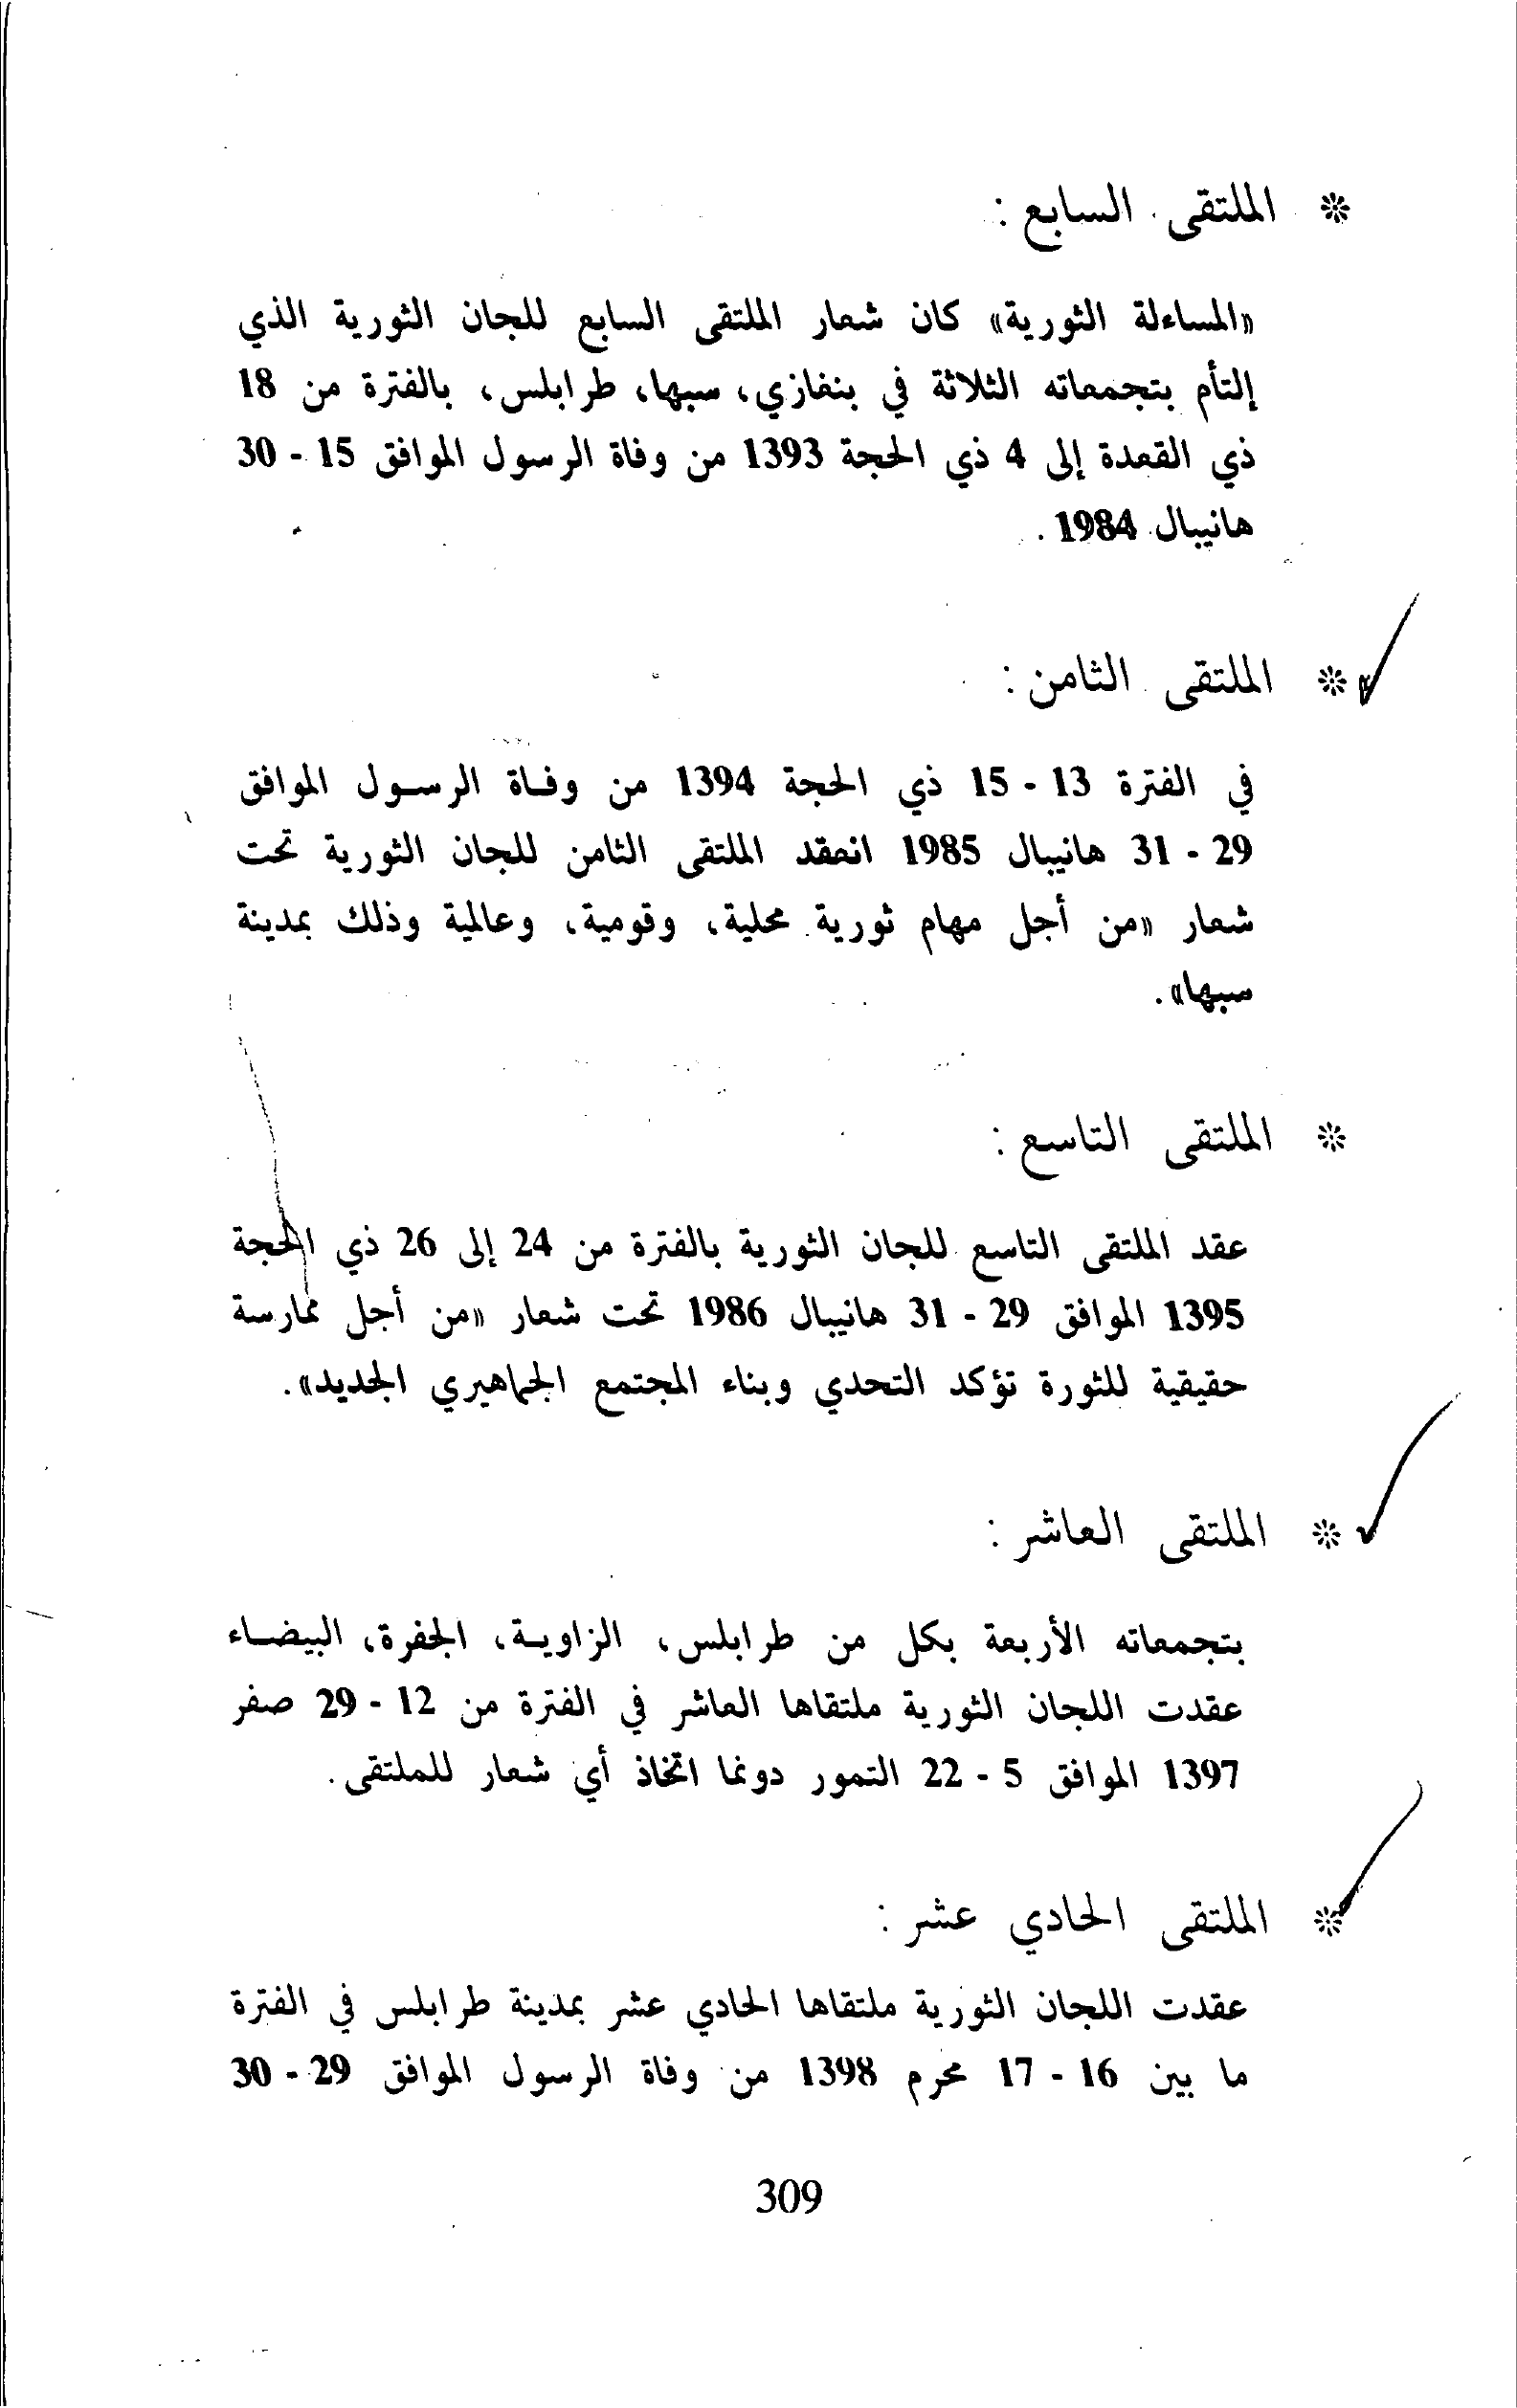 * الملتقى السابع :
«المساءلة الثورية» كان شعار الملتقى السابع للجان الثورية الذي
إلتأم بتجمعاته الثلاثة في بنغازي، سبها، طرابلس، بالفترة من 18
ذي القعدة إلى 4 ذي الحجة 1393 من وفاة الرسول الموافق 15 - 30
هانيبال 1984 .
* الملتقى الثامن :
في الفترة 13 - 15 ذي الحجة 1394 من وفاة الرسول الموافق
29 - 31 هانيبال 1985 انعقد الملتقى الثامن للجان الثورية تحت
شعار «من أجل مهام ثورية محلية، وقومية، وعالمية وذلك بمدينة
سبها» .
* الملتقى التاسع :
عقد الملتقى التاسع للجان الثورية بالفترة من 24 إلى 26 ذي الحجة
1395 الموافق 29 - 31 هانيبال 1986 تحت شعار «من أجل ممارسة
حقيقية للثورة تؤكد التحدي وبناء المجتمع الجماهيري الجديد» .
* الملتقى العاشر :
بتجمعاته الأربعة بكل من طرابلس، الزاوية، الجفرة، البيضاء
عقدت اللجان الثورية ملتقاها العاشر في الفترة من 12 - 29 صفر
1397 الموافق 5 - 22 التمور دونما اتخاذ أي شعار للملتقى .
* الملتقى الحادي عشر :
عقدت اللجان الثورية ملتقاها الحادي عشر بمدينة طرابلس في الفترة
ما بين 16 - 17 محرم 1398 من وفاة الرسول الموافق 29 - 30
309